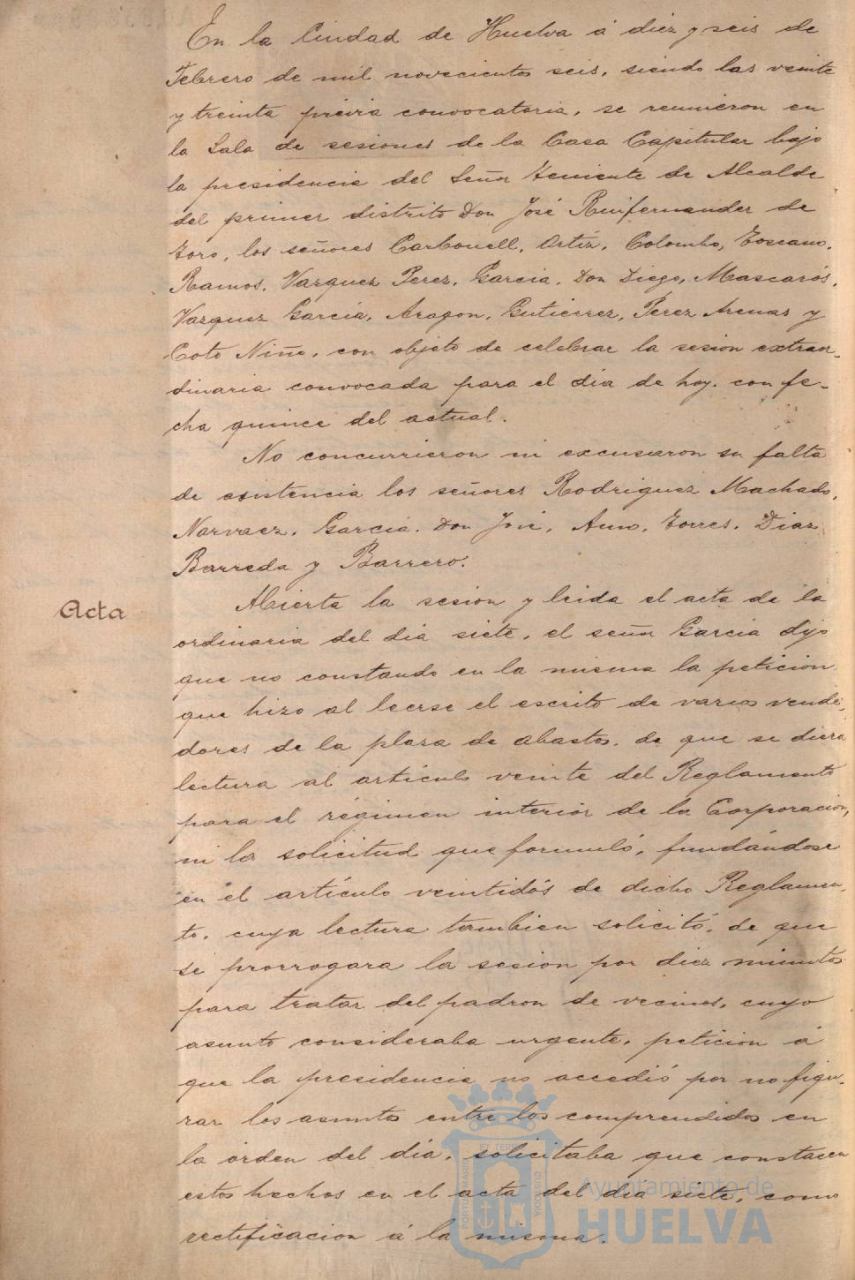 En la Ciudad de Huelva á diez y seis de
Febrero de mil novecientos seis, siendo las veinte
y treinta prévia convocatoria, se reunieron en
la Sala de sesiones de la Casa Capitular bajo
la presidencia del Señor Teniente de Alcalde
del primer distrito Don José Ruifernandez de
Toro, los señores Carbonell, Ortiz, Colombo, Toscano,
Ramos, Vazquez Perez, Garcia, Don Diego, Mascarós,
Vazquez García, Aragon, Gutierrez, Perez Arenas y
Coto Niño, con objeto de celebrar la sesion extraor-
dinaria convocada para el dia de hoy, con fe-
cha quince del actual.
No concurrieron ni excusaron su falta
de asistencia los señores Rodriguez Machado,
Narvaez, Garcia, Don José, Amo, Torres, Diaz
Barreda y Barrero.
Acta
Abierta la sesion y leida el acta de la
ordinaria del dia siete, el señor Garcia dijo
que no constando en la misma la peticion
que hizo al leerse el escrito de varios vende-
dores de la plaza de abastos, de que se diera
lectura al artículo veinte del Reglamento
para el régimen interior de la Corporacion,
ni la solicitud que formuló, fundándose
en el artículo veintidós de dicho Reglamen-
to, cuya lectura tambien solicitó, de que
se prorrogara la sesion por diez minutos
para tratar del padron de vecinos, cuyo
asunto consideraba urgente, peticion á
que la presidencia no accedió por no figu-
rar los asuntos entre los comprendidos en
la órden del dia, solicitaba que constasen
estos hechos en el acta del dia siete, como
rectificacion á la misma.
Ayuntamiento de
HUELVA